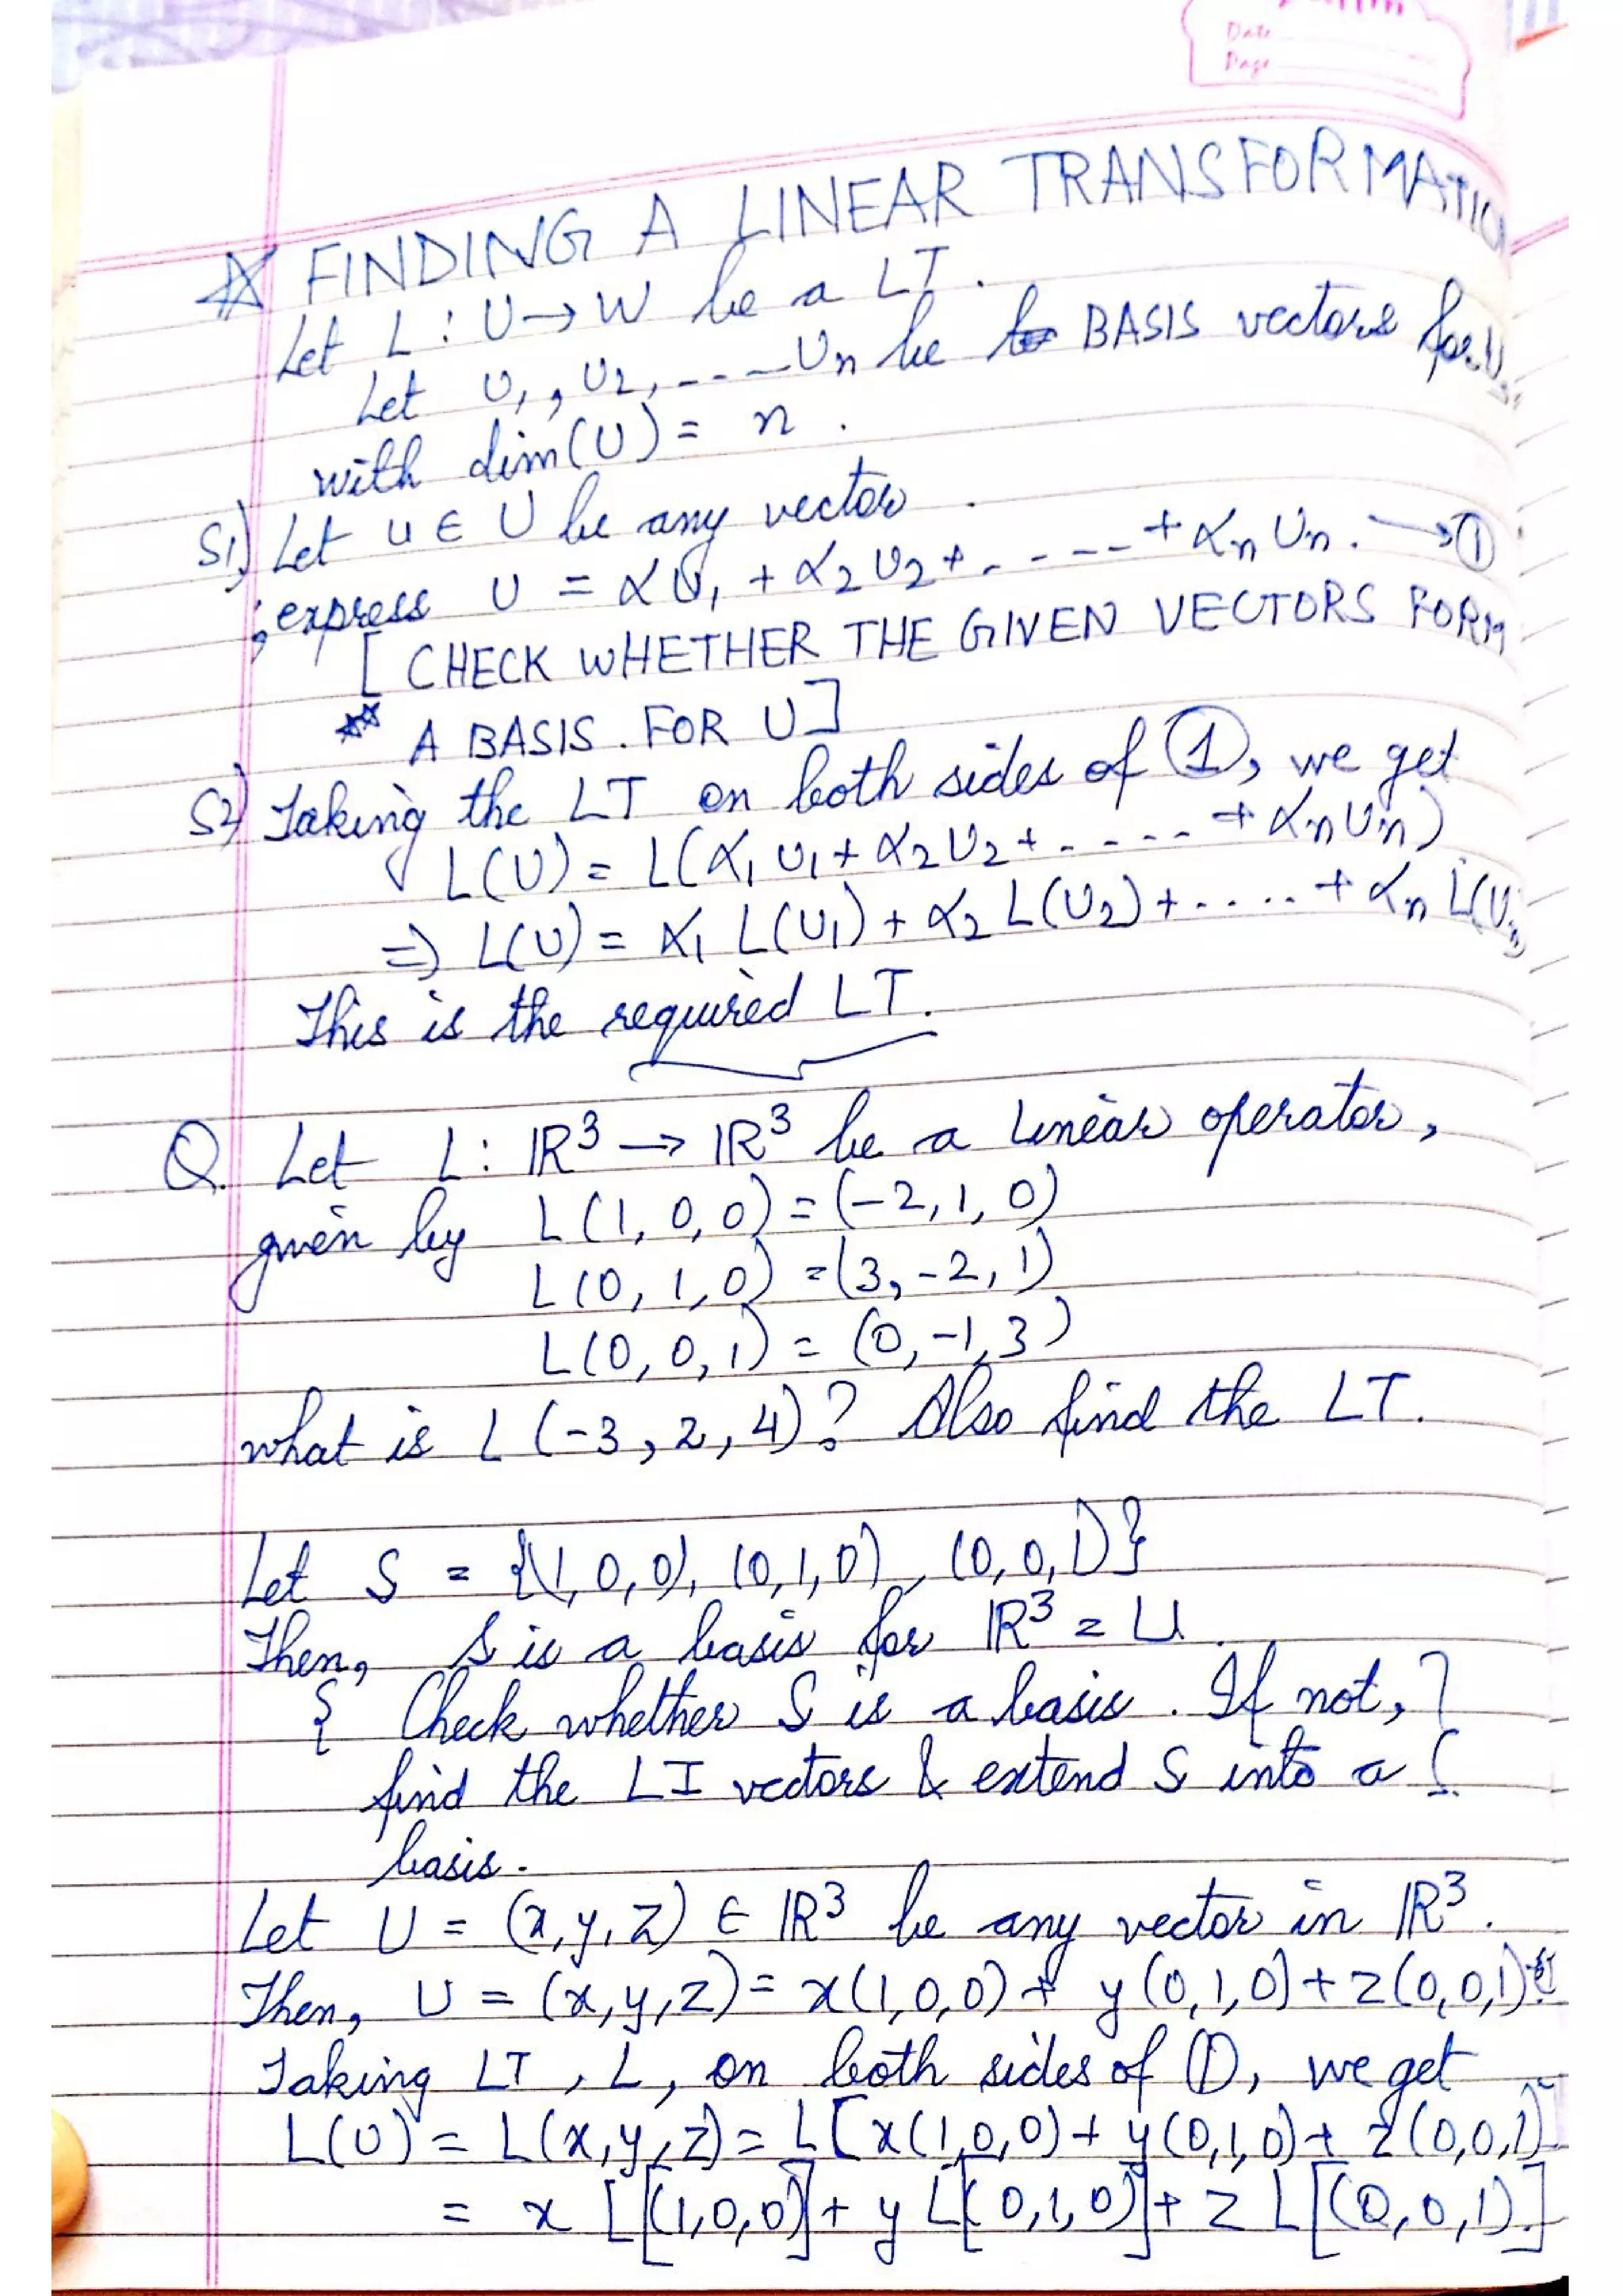 Date
Page
☆ FINDING A LINEAR TRANSFORMATIO
Let L : U → W be a LT.
Let U₁, U₂, ----Uₙ be BASIS vectors for U,
with dim(U) = n.
S1) Let u ∈ U be any vector.
; express U = αU₁ + α₂U₂ + - - - - + αₙUₙ. → ①
[ CHECK WHETHER THE GIVEN VECTORS FORM
☆☆ A BASIS. FOR U]
S2) Taking the LT on both sides of ①, we get
L(U) = L(α₁U₁ + α₂U₂ + - - - - + αₙUₙ)
=> L(U) = α₁ L(U₁) + α₂ L(U₂) + ..... + αₙ L(Uₙ
This is the required LT.
Q. Let L: ℝ³ → ℝ³ be a linear operator,
given by L(1, 0, 0) = (-2, 1, 0)
L(0, 1, 0) = (3, -2, 1)
L(0, 0, 1) = (0, -1, 3)
what is L(-3, 2, 4)? Also find the LT.
Let S = {(1, 0, 0), (0, 1, 0), (0, 0, 1)}
Then, S is a basis for ℝ³ = U.
{ Check whether S is a basis. If not, }
find the LI vectors & extend S into a
basis.
Let U = (x, y, z) ∈ ℝ³ be any vector in ℝ³.
Then, U = (x, y, z) = x(1,0,0) + y(0,1,0) + z(0,0,1)
Taking LT, L, on both sides of ①, we get
L(U) = L(x, y, z) = L[x(1,0,0) + y(0,1,0) + z(0,0,1)
= x L[(1,0,0)] + y L[(0,1,0)] + z L[(0,0,1)]